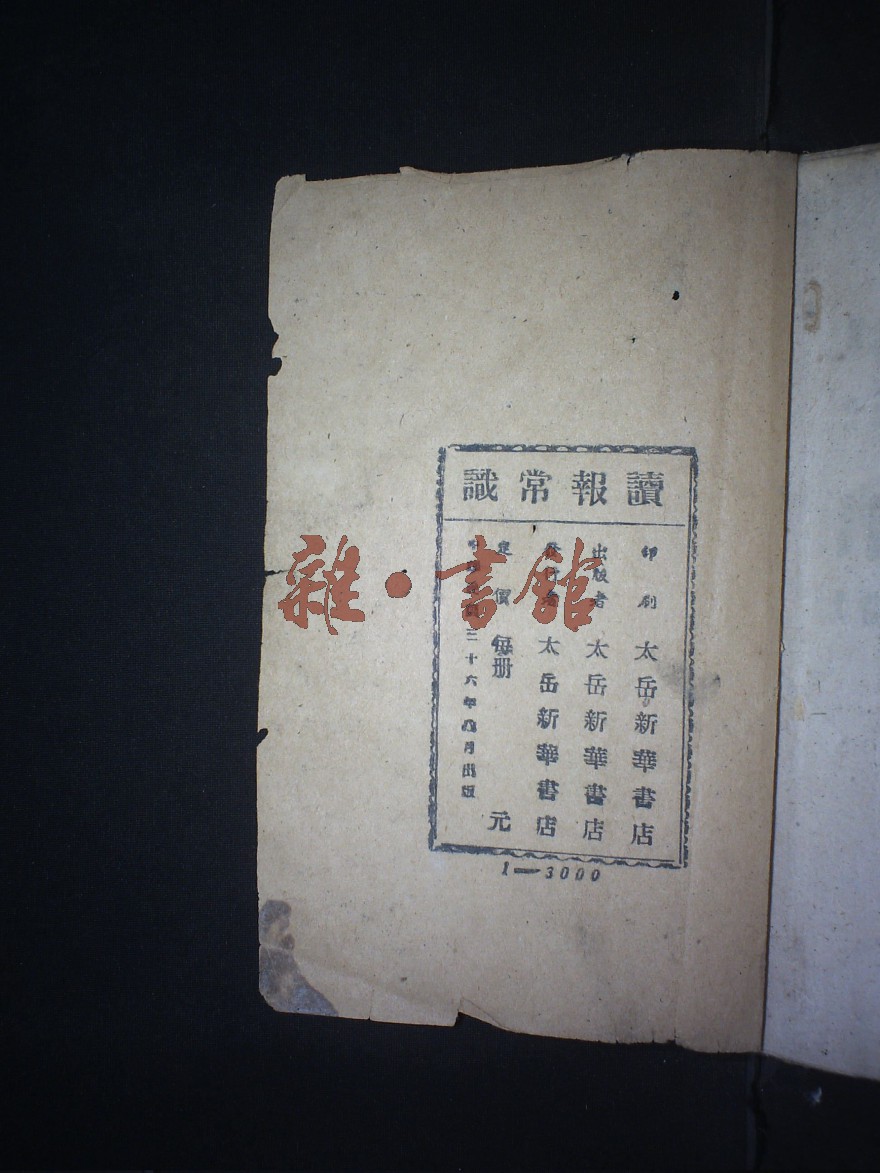 讀報常識
印刷 太岳新華書店
出版者 太岳新華書店
發行者 太岳新華書店
定價 每册 元
中華民國三十六年八月出版
1—3000
雜·書館